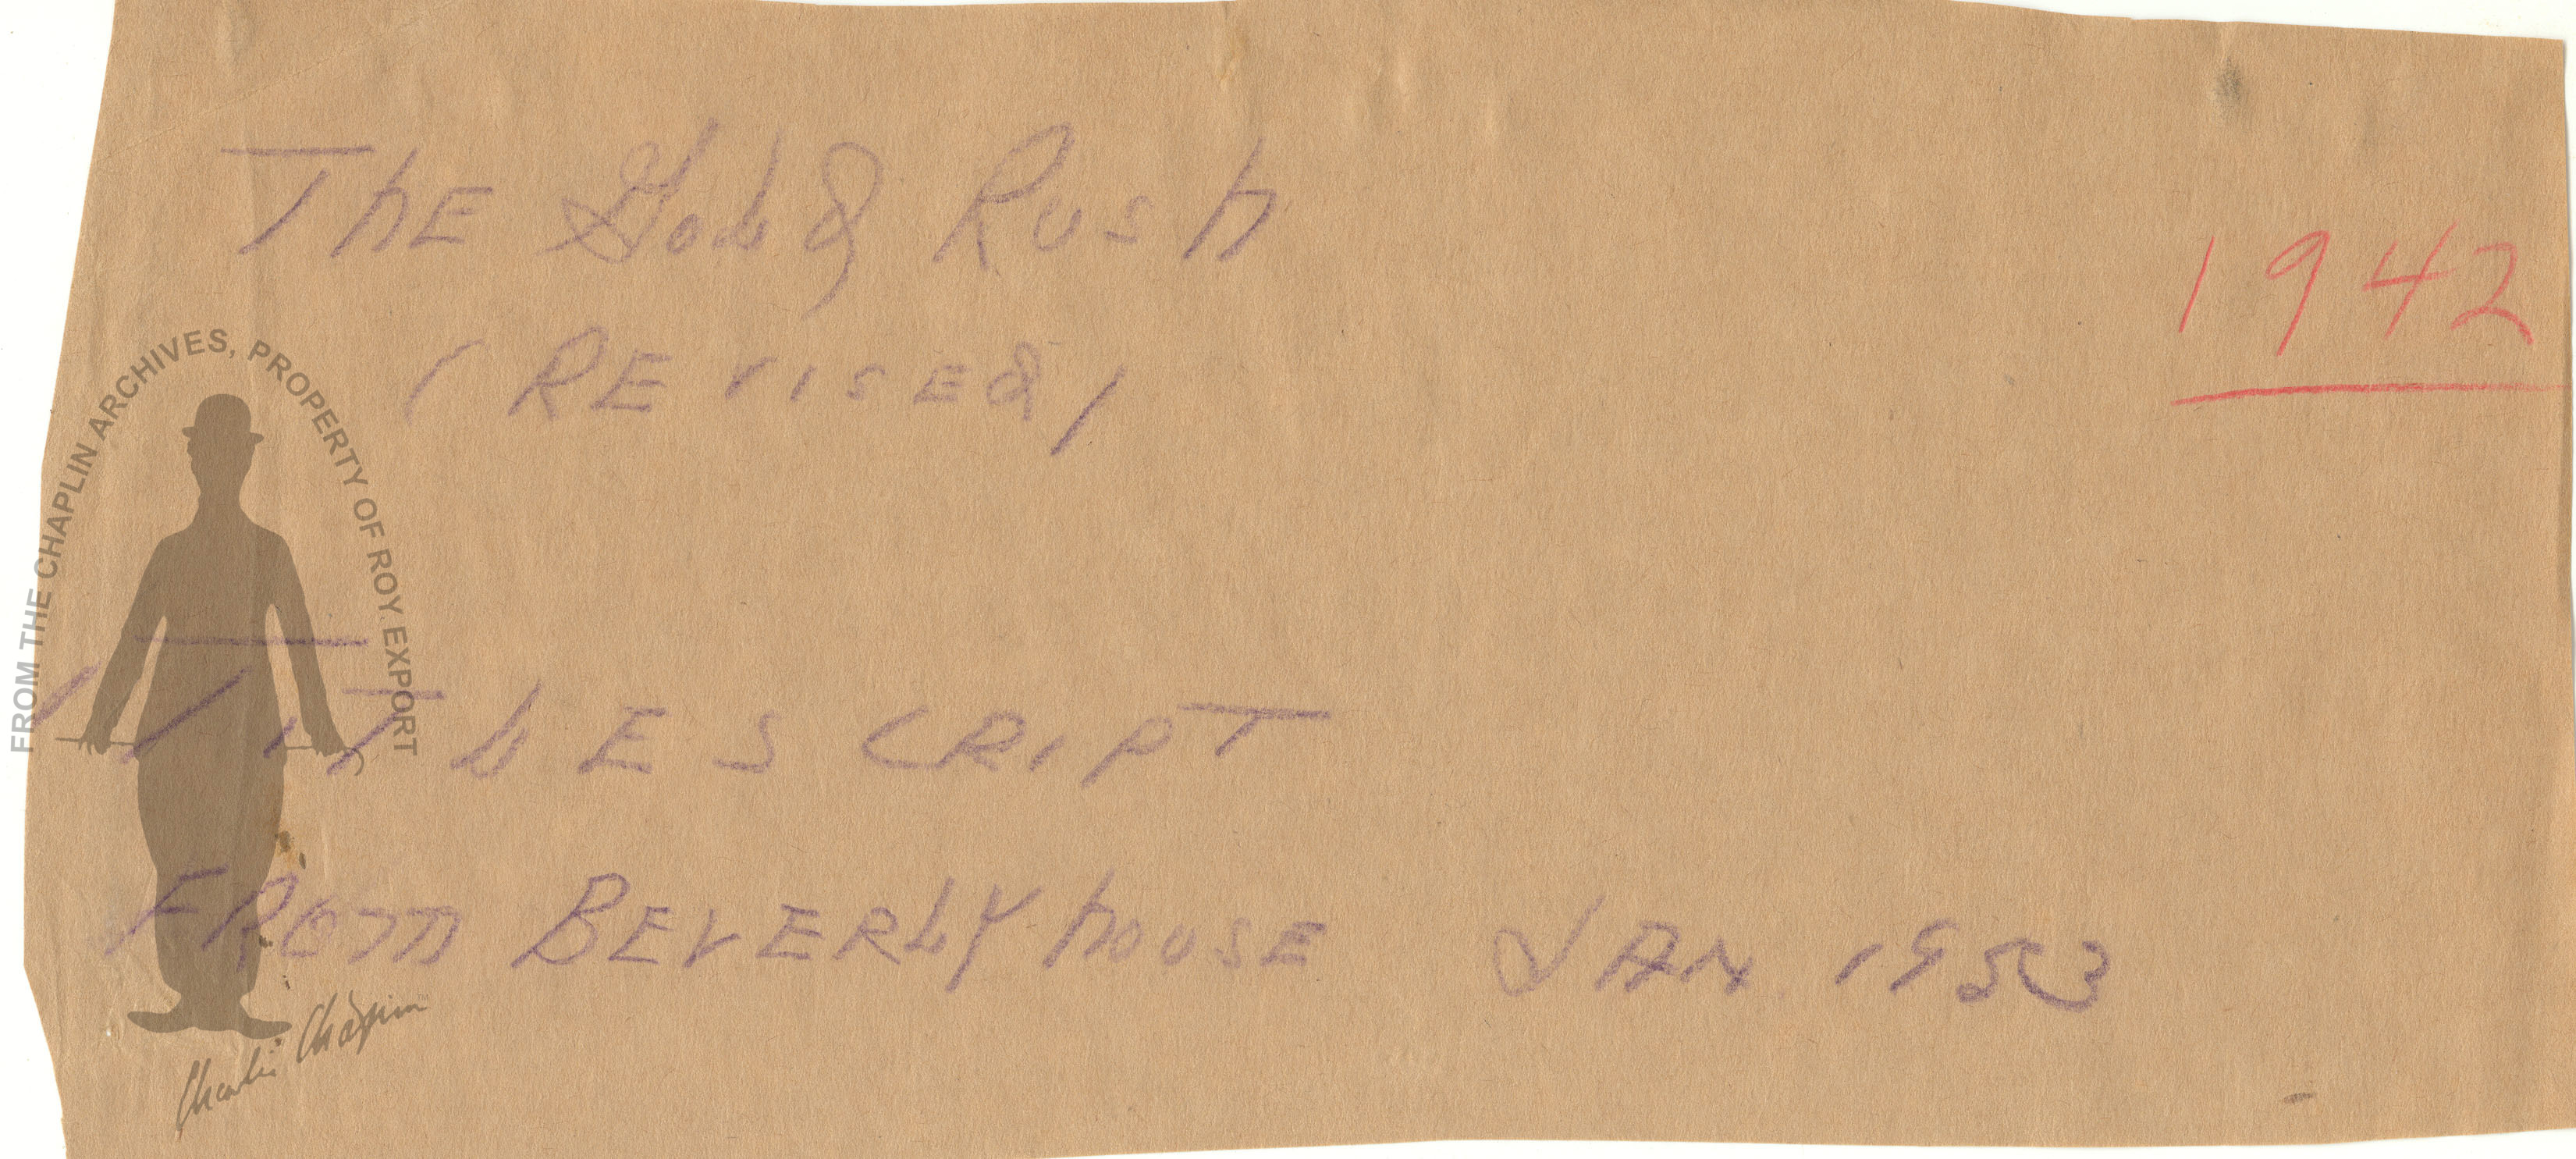 The Gold Rush
(REVISED)
1942
TITLE SCRIPT
FROM BEVERLY HOUSE JAN 1953
FROM THE CHAPLIN ARCHIVES, PROPERTY OF ROY EXPORT
Charlie Chaplin